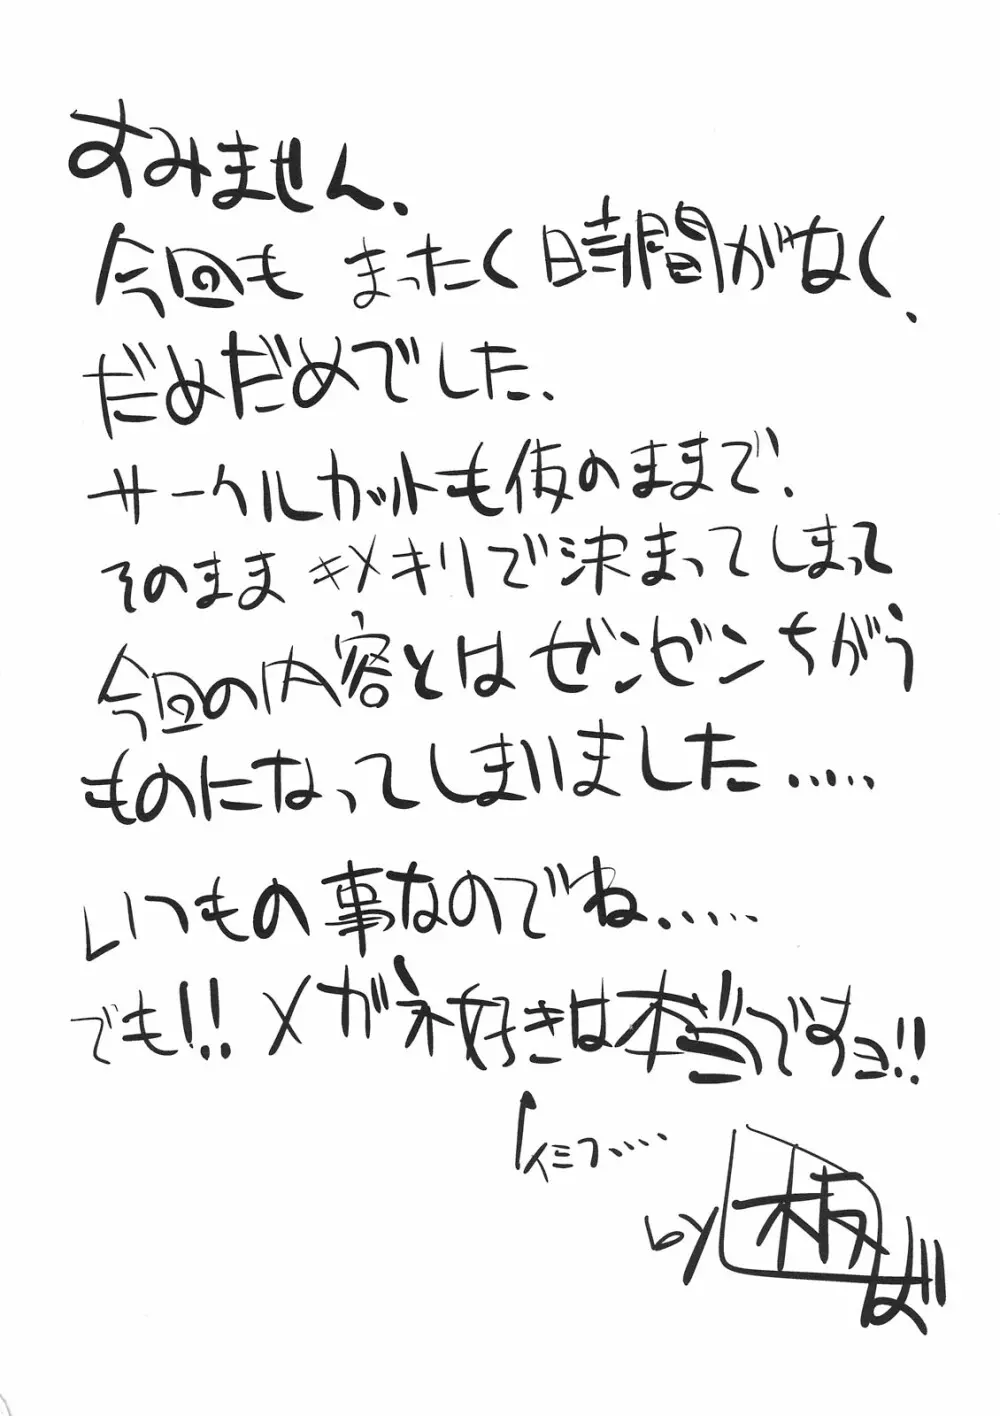 すみません、
今回も まったく時間がなく、
だめだめでした、
サークルカットも仮のままで、
そのまま キメキリで決まってしまって
今回の内容とは ゼンゼンちがう
ものになってしまいました.....
いつもの事なのでね.....
でも!! メガネ好きは本当ですョ!!
イミフ.....
by 板ば